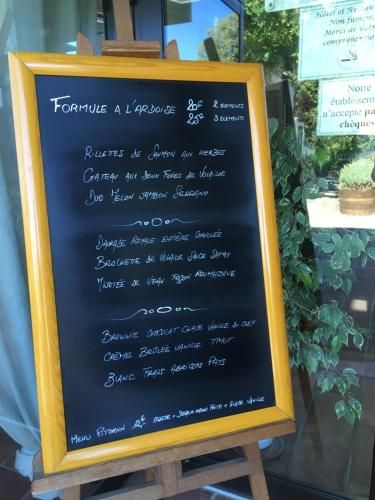 FORMULE A L'ARDOISE 20€ 2 ELEMENTS
25€ 3 ELEMENTS
RILLETTES DE SAUMON AUX HERBES
GATEAU AUX DEUX FOIES DE VOLAILLE
DUO MELON JAMBON SERRANO
DAURADE ROYALE ENTIÈRE GRILLÉE
BROCHETTE DE VOLAILLE SAUCE SATAY
MIJOTÉE DE VEAU FAÇON
BROWNIE CHOCOLAT GLACE VANILLE DU CHEF
CRÈME BRÛLÉE VANILLE
BLANC FRAIS ABRICOTS PAYS
MENU PITCHOUN 12€ + STEAK HACHÉ + GLACE VANILLE
Hôtel et Restau
Non fumeur
Merci de votre
compréhension
Notre
établissement
n'accepte pa
chèques